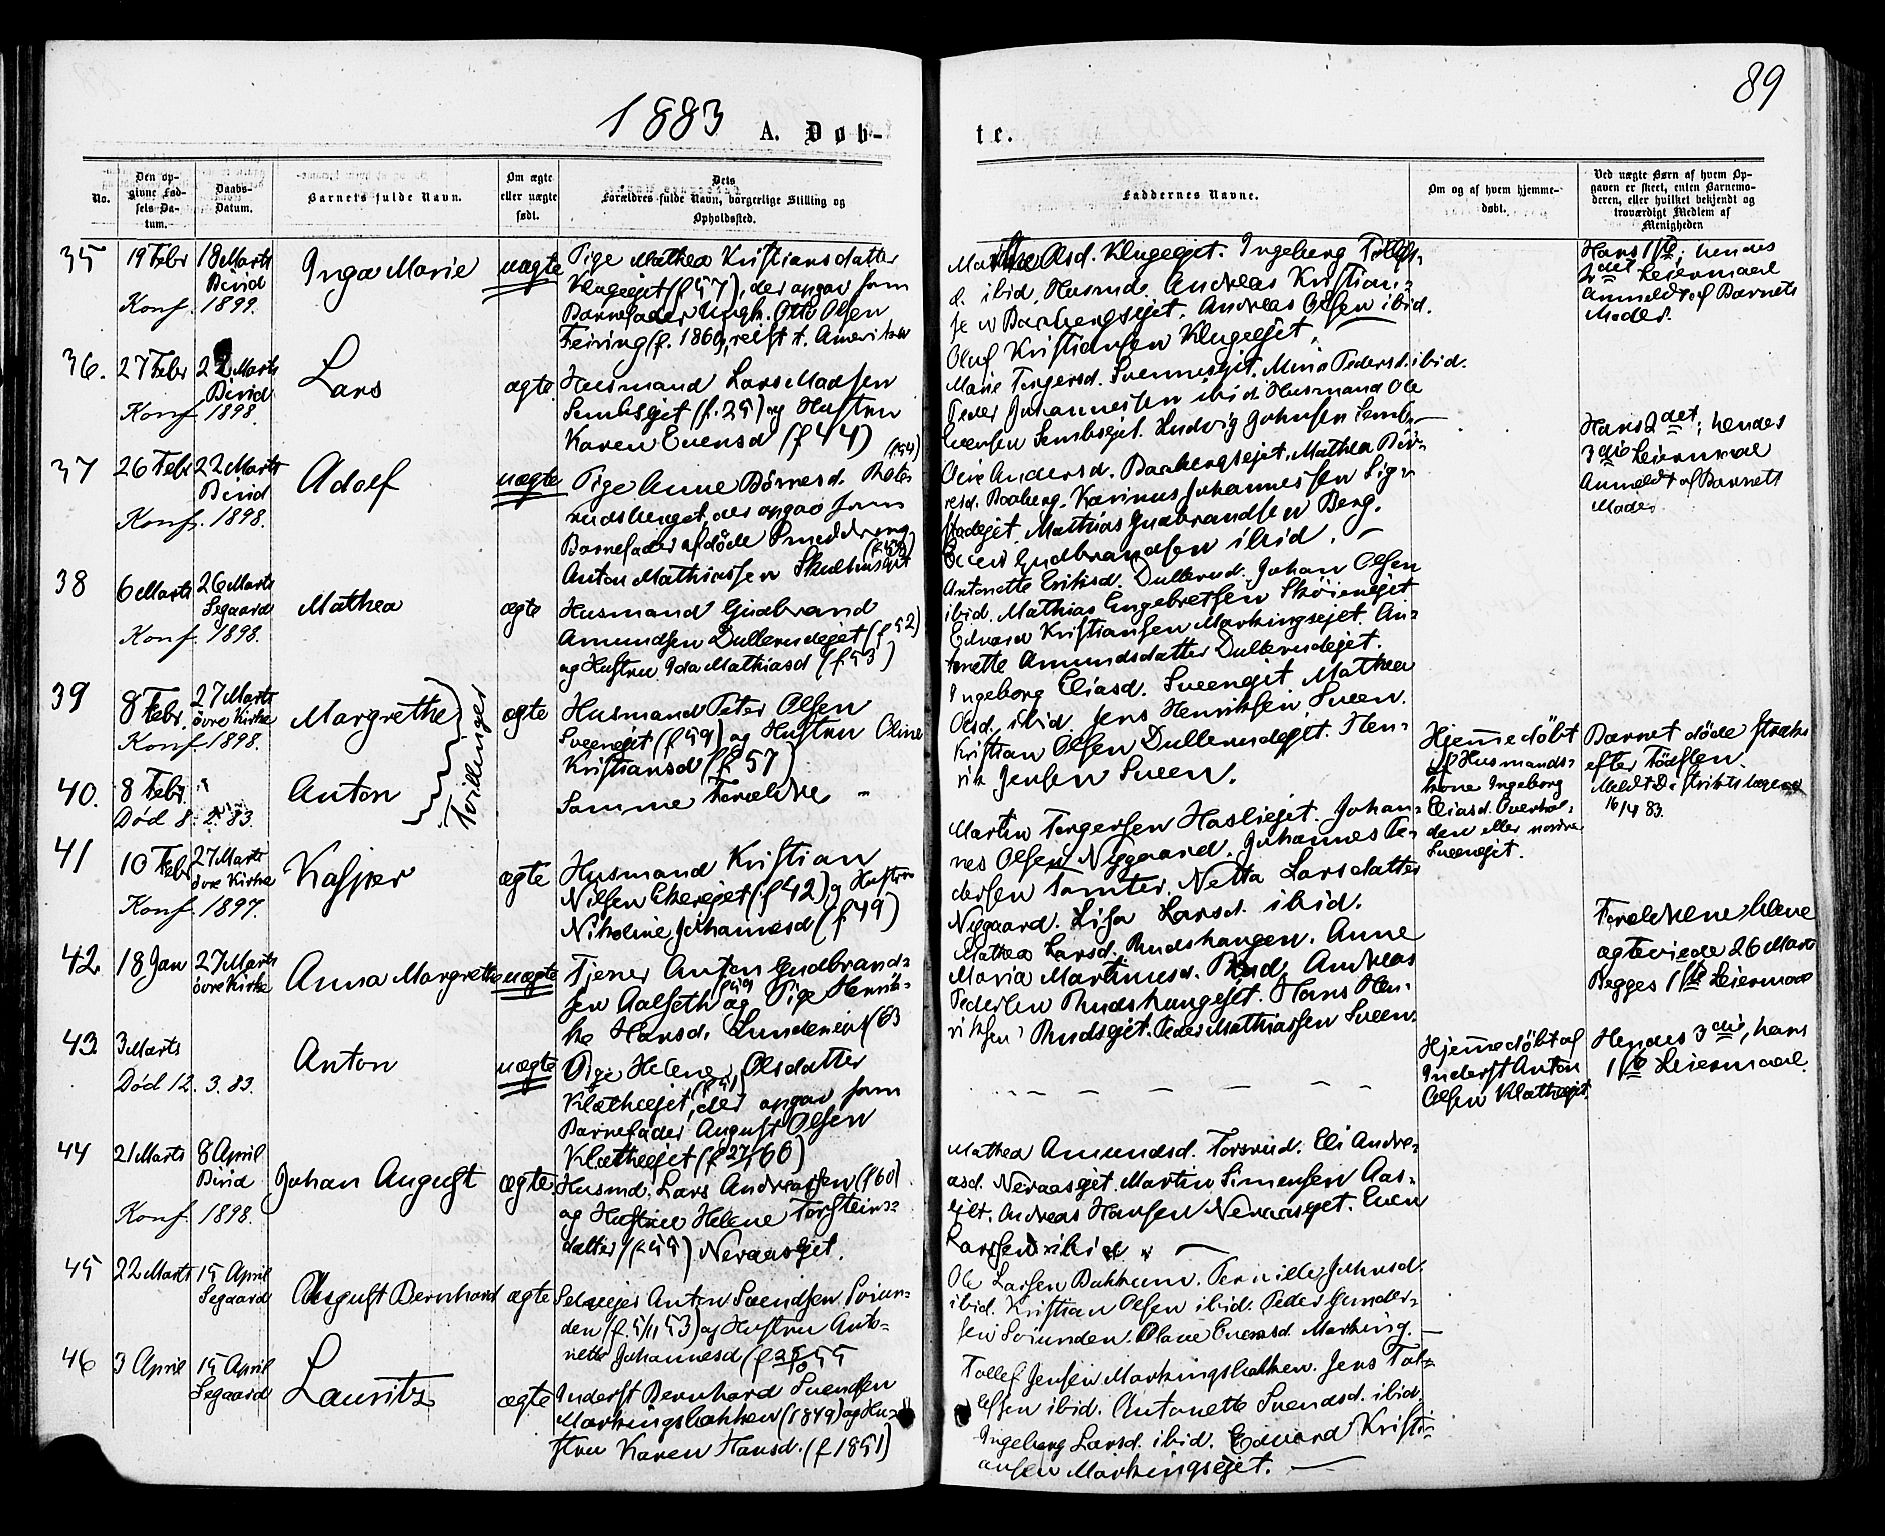 89
1883 A. Døb-
te.
No.
Den op-
givne Fød-
sels Da-
tum.
Daabs-
Datum.
Barnets fulde Navn.
Om ægte
eller uægte
født.
Dets
Forældres fulde Navn, borgerlige Stilling og
Opholdssted.
Faddernes Navne.
Om og af hvem hjemme-
døbt.
Ved uægte Børn af hvem Op-
gaven er skeet, enten Barnemo-
deren, eller hvilket bekjendt og
troværdigt Medlem af
Menigheden
35
19 Febr
18 Marts
Birid
Konf. 1899.
Inga Marie
uægte
Pige Mathea Kristiansdatter
Klugeejet (f 57), der opgav som
Barnefader Ungk. Otto Olsen
Feiring (f. 1860, reist t. Amerika
Olsd. Klugeejet. Ingeborg
d. ibid. Husmd. Andreas Kristian-
sen Baabergsejet. Andreas Olsen ibid.
Oluf Kristiansen Klugeejet.
Hans 1ste, hendes
2det Leiermaal
Anmeldt af Barnets
Moder.
36.
27 Febr
22 Marts
Birid
Konf. 1898.
Lars
ægte
Husmand Lars Madsen
Sembsejet (f. 25) og Hustru
Karen Evensd (f 44)
Marie Torgersd. Svennesejet. Mina Pedersd. ibid.
Peder Johannessen ibid. Husmand Ole
Evensen Sembsejet. Ludvig Johnsen Semb.
37
26 Febr
22 Marts
Birid
Konf. 1898.
Adolf
uægte
Pige Anne Børresd.
(f 54)
der opgav som
Barnefader afdøde Smeddreng
Anton Mathiassen
Andersd. Baabergsejet. Mathea Bør-
resd. Baaberg. Karinus Johannessen Sig-
stadejet. Mathias Gudbrandsen Berg.
Gudbrandsen ibid.
Hans 2det; hendes
3die Leiermaal
Anmeldt af Barnets
Moder
38
6 Marts
26 Marts
Segaard
Konf. 1898.
Mathea
ægte
Husmand Gudbrand
Amundsen Dullerudejet (f 52)
og Hustru Ida Mathiasd (f 53)
Antonette Eriksd. Dullerud. Johan Olsen
ibid. Mathias Engebretsen Skøienejet
Edvard Kristiansen Markingsejet. An-
tonette Amundsdatter Dullerudejet.
39
8 Febr.
27 Marts
øvre Kirke
Konf. 1898.
Margrethe
Tvillinger
ægte
Husmand Peter Olsen
Sveenejet (f 59) og Hustru Oline
Kristiansd (f 57)
Ingeborg Eliasd. Sveenejet. Mathea
Olsd. ibid. Jens Henriksen Sveen.
Kristian Olsen Dullerudejet. Hen-
rik Jensen Sveen.
40.
8 Febr.
"
Død 8. 2. 83.
Anton
Samme Forældre "
Hjemmedøbt
af Husmands-
kone Ingeborg
Eliasd. Overhal-
den eller nordre
Sveenejet.
Barnet døde straks
efter Fødslen.
Meldt Distriktslægen
16/4 83.
41
10 Febr
27 Marts
øvre Kirke
Konf. 1897.
Kasper
ægte
Husmand Kristian
Nilsen Ekerejet (f 42) og Hustru
Nikoline Johannesd (f 49)
Martin Torgersen Haslieejet. Johan-
nes Olsen Nygaard. Johannes Pe-
dersen Tomter. Netta Larsdatter
Nygaard. Lisa Larsd. ibid.
42.
18 Jan
27 Marts
øvre Kirke
Anna Margrethe
uægte
Tjener Anton Gudbrand-
sen Aalseth (f 59) og Pige Henrik-
ke Hansd. Lundeneie (f 63
Mathea Larsd. Rudshaugen. Anne
Maria Martinusd. Rud. Andreas
Pedersen Rudshaugejet. Hans Hen-
riksen Rudsejet. Peder Mathiassen Sveen.
Forældrene blevne
ægteviede 26 Marts
Begges 1ste Leiermaal
43.
3 Marts
Død 12. 3. 83.
Anton
uægte
Pige Helene Olsdatter
Klætheejet (f 51), der opgav som
Barnefader August Olsen
Klætheejet (f 27/1 60)
Hjemmedøbt af
Inderst Anton
Olsen Klætheejet.
Hendes 3die, hans
1ste Leiermaal.
44
21 Marts
8 April
Birid
Konf. 1898.
Johan August
ægte
Husmd. Lars Andreassen (f 60)
og Hustru Helene Torsteins-
datter (f 55) Neraasejet.
Mathea Amundsd. Forsrud. Eli Andre-
asd. Neraasejet. Martin Simensen Aas-
ejet. Andreas Hansen Neraasejet. Even
Larssen ibid
45
22 Marts
15 April
Segaard
August Bernhard
ægte
Selveier Anton Svendsen Soiun-
den (f. 5/11 53) og Hustru Anto-
nette Johannesd (f 25/10 55
Ole Larsen Bakkum. Pernille Johnsd.
ibid. Kristian Olsen ibid. Peder Gunder-
sen Soiunden. Olave Evensd. Marking.
46
3 April
15 April
Segaard
Lauritz
ægte
Inderst Bernhard Svendsen
Markingsbakken (1849) og Hu-
stru Karen Hansd. (f 1851)
Tollef Jensen Markingsbakken. Jens Tol-
lefsen ibid. Antonette Svendsd. ibid.
Ingeborg Larsd. ibid. Edvard Kristi-
ansen Markingsejet.